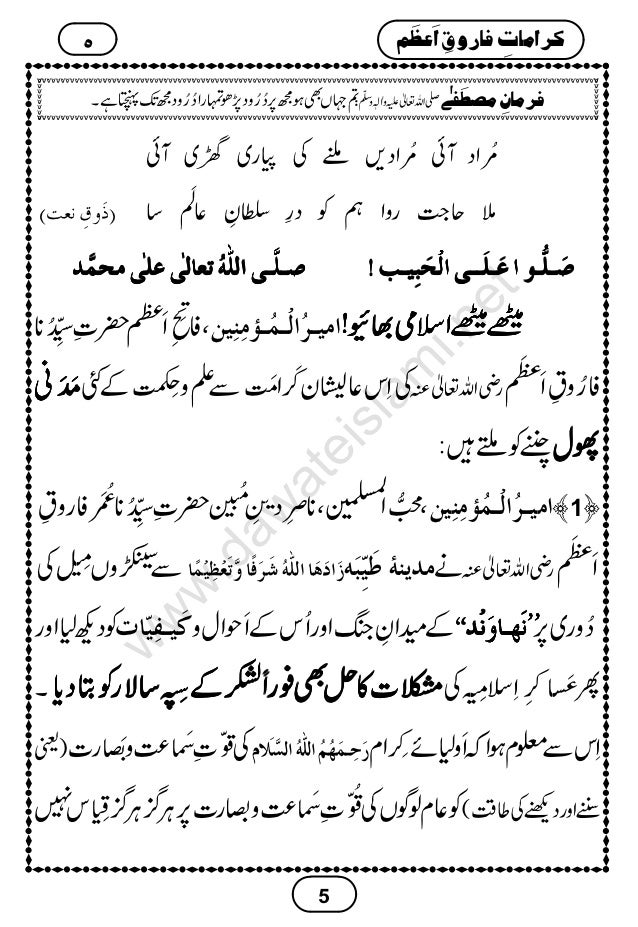 کراماتِ فاروقِ اَعظَم
۵
فرمانِ مصطَفٰے صلی اللہ تعالیٰ علیہ واٰلہٖ وسلّم: تم جہاں بھی ہو مجھ پر دُرُود پڑھو تمہارا دُرُود مجھ تک پہنچتا ہے۔
مُراد آئی مُرادیں ملنے کی پیاری گھڑی آئی
ملا حاجت روا ہم کو درِ سلطانِ عالَم سا (ذَوقِ نعت)
صَلُّوا عَلَی الْحَبِیب! صلَّی اللہُ تعالیٰ علیٰ محمَّد
میٹھے میٹھے اسلامی بھائیو! امیرُ الْمُؤمِنِین، فاتحِ اَعظم حضرتِ سیِّدُنا
فارُوقِ اَعظَم رضی اللہ تعالیٰ عنہ کی اِس عالیشان کَرامَت سے علم وحِکمت کے کئی مَدَنی
پھول چننے کو ملتے ہیں:
﴿1﴾ امیرُ الْمُؤمِنِین، محبُّ المسلمین، ناصرِ دینِ مُبین حضرتِ سیِّدُنا عُمَر فاروقِ
اَعظَم رضی اللہ تعالیٰ عنہ نے مدینۂ طَیِّبَہ زَادَھَا اللہُ شَرَفًا وَّتَعْظِیْمًا سے سینکڑوں میل کی
دُوری پر ”نَہاوَنْد“ کے میدانِ جنگ اور اُس کے اَحوال وکَیفِیّات کو دیکھ لیا اور
پھر عَسا کرِ اِسلامِیہ کی مشکلات کا حل بھی فوراً لشکر کے سِپہ سالار کو بتا دیا۔
اِس سے معلوم ہوا کہ اَولیائے کِرام رَحِمَہُمُ اللہُ السَّلَام کی قوّتِ سَماعت و بَصارت (یعنی
سننے اور دیکھنے کی طاقت) کو عام لوگوں کی قُوّتِ سَماعت و بصارت پر ہرگز ہرگز قِیاس نہیں
5
www.dawateislami.net